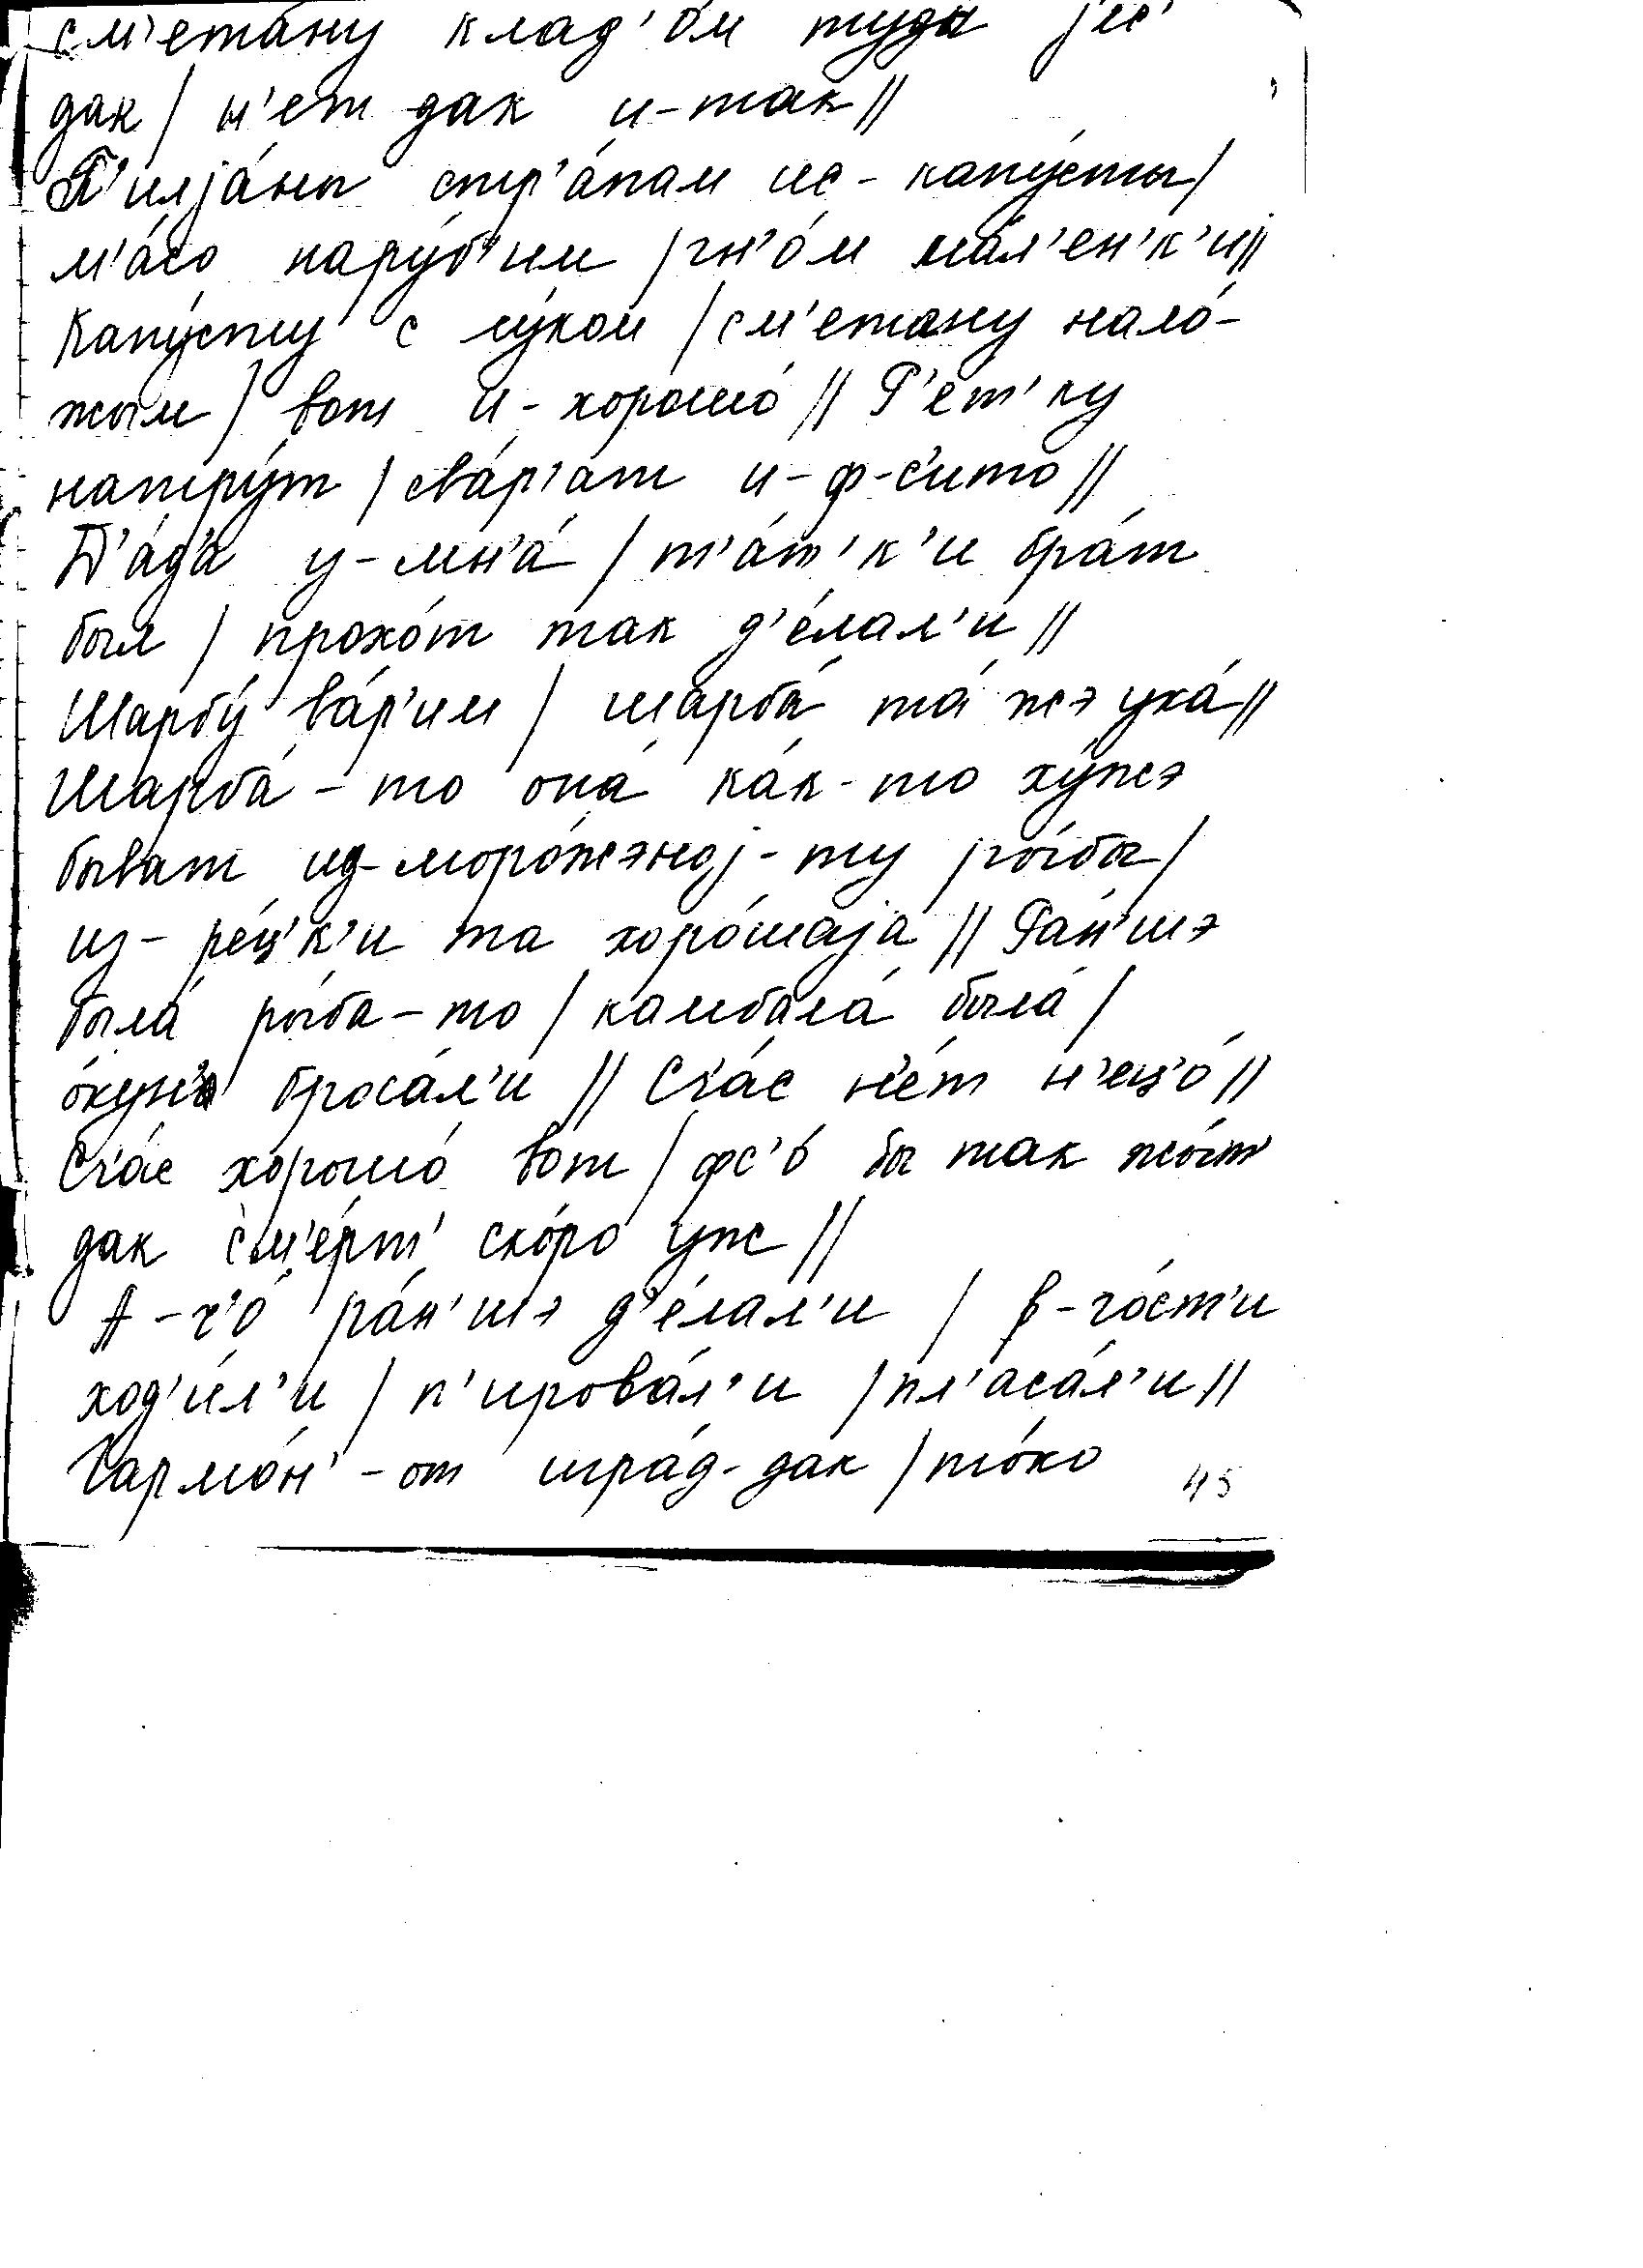 см'ета́ну клад'о́м туда́ jес'
дак / н'ет дак и-так //
П'илjа́ны стр'а́пам ис-капу́сты /
м'а́со нару́б'им / гн'о́м ма́л'ен'к'и //
Капу́сту с лу́ком / см'етану нало́-
жым / вот и-хорошо́ // Р'е́т'ку
натру́т / сва́р'ат и-ф-с'и́то //
Д'а́д'а у-мн'а́ / т'а́т'к'и бра́т
был / прохо́т так д'е́лал'и //
Шарбу́ ва́р'им / шарба́ та́ жэ уха́ //
Шарба́-то она́ ка́к-то ху́жэ
быват из-моро́жэноj-ту ры́бы /
из-ре́ц'к'и та хоро́шаjа // Ра́н'шэ
была́ ры́ба-то / камбала́ была́ /
о́кун'а броса́л'и // Сч'а́с н'е́т н'ец'о́ //
Сч'а́с хорошо́ вот / фс'о́ бы так жы́т'
дак с'м'е́рт' ско́ро уж //
А-ч'о́ ра́н'шэ д'е́лал'и / в-го́ст'и
ход'и́л'и / п'ирова́л'и / пл'аса́л'и //
Гармо́н'-от игра́д-дак / то́ко 45